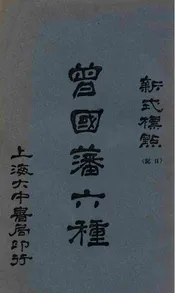 新式標點
曾國藩六種
上海大中書局印行